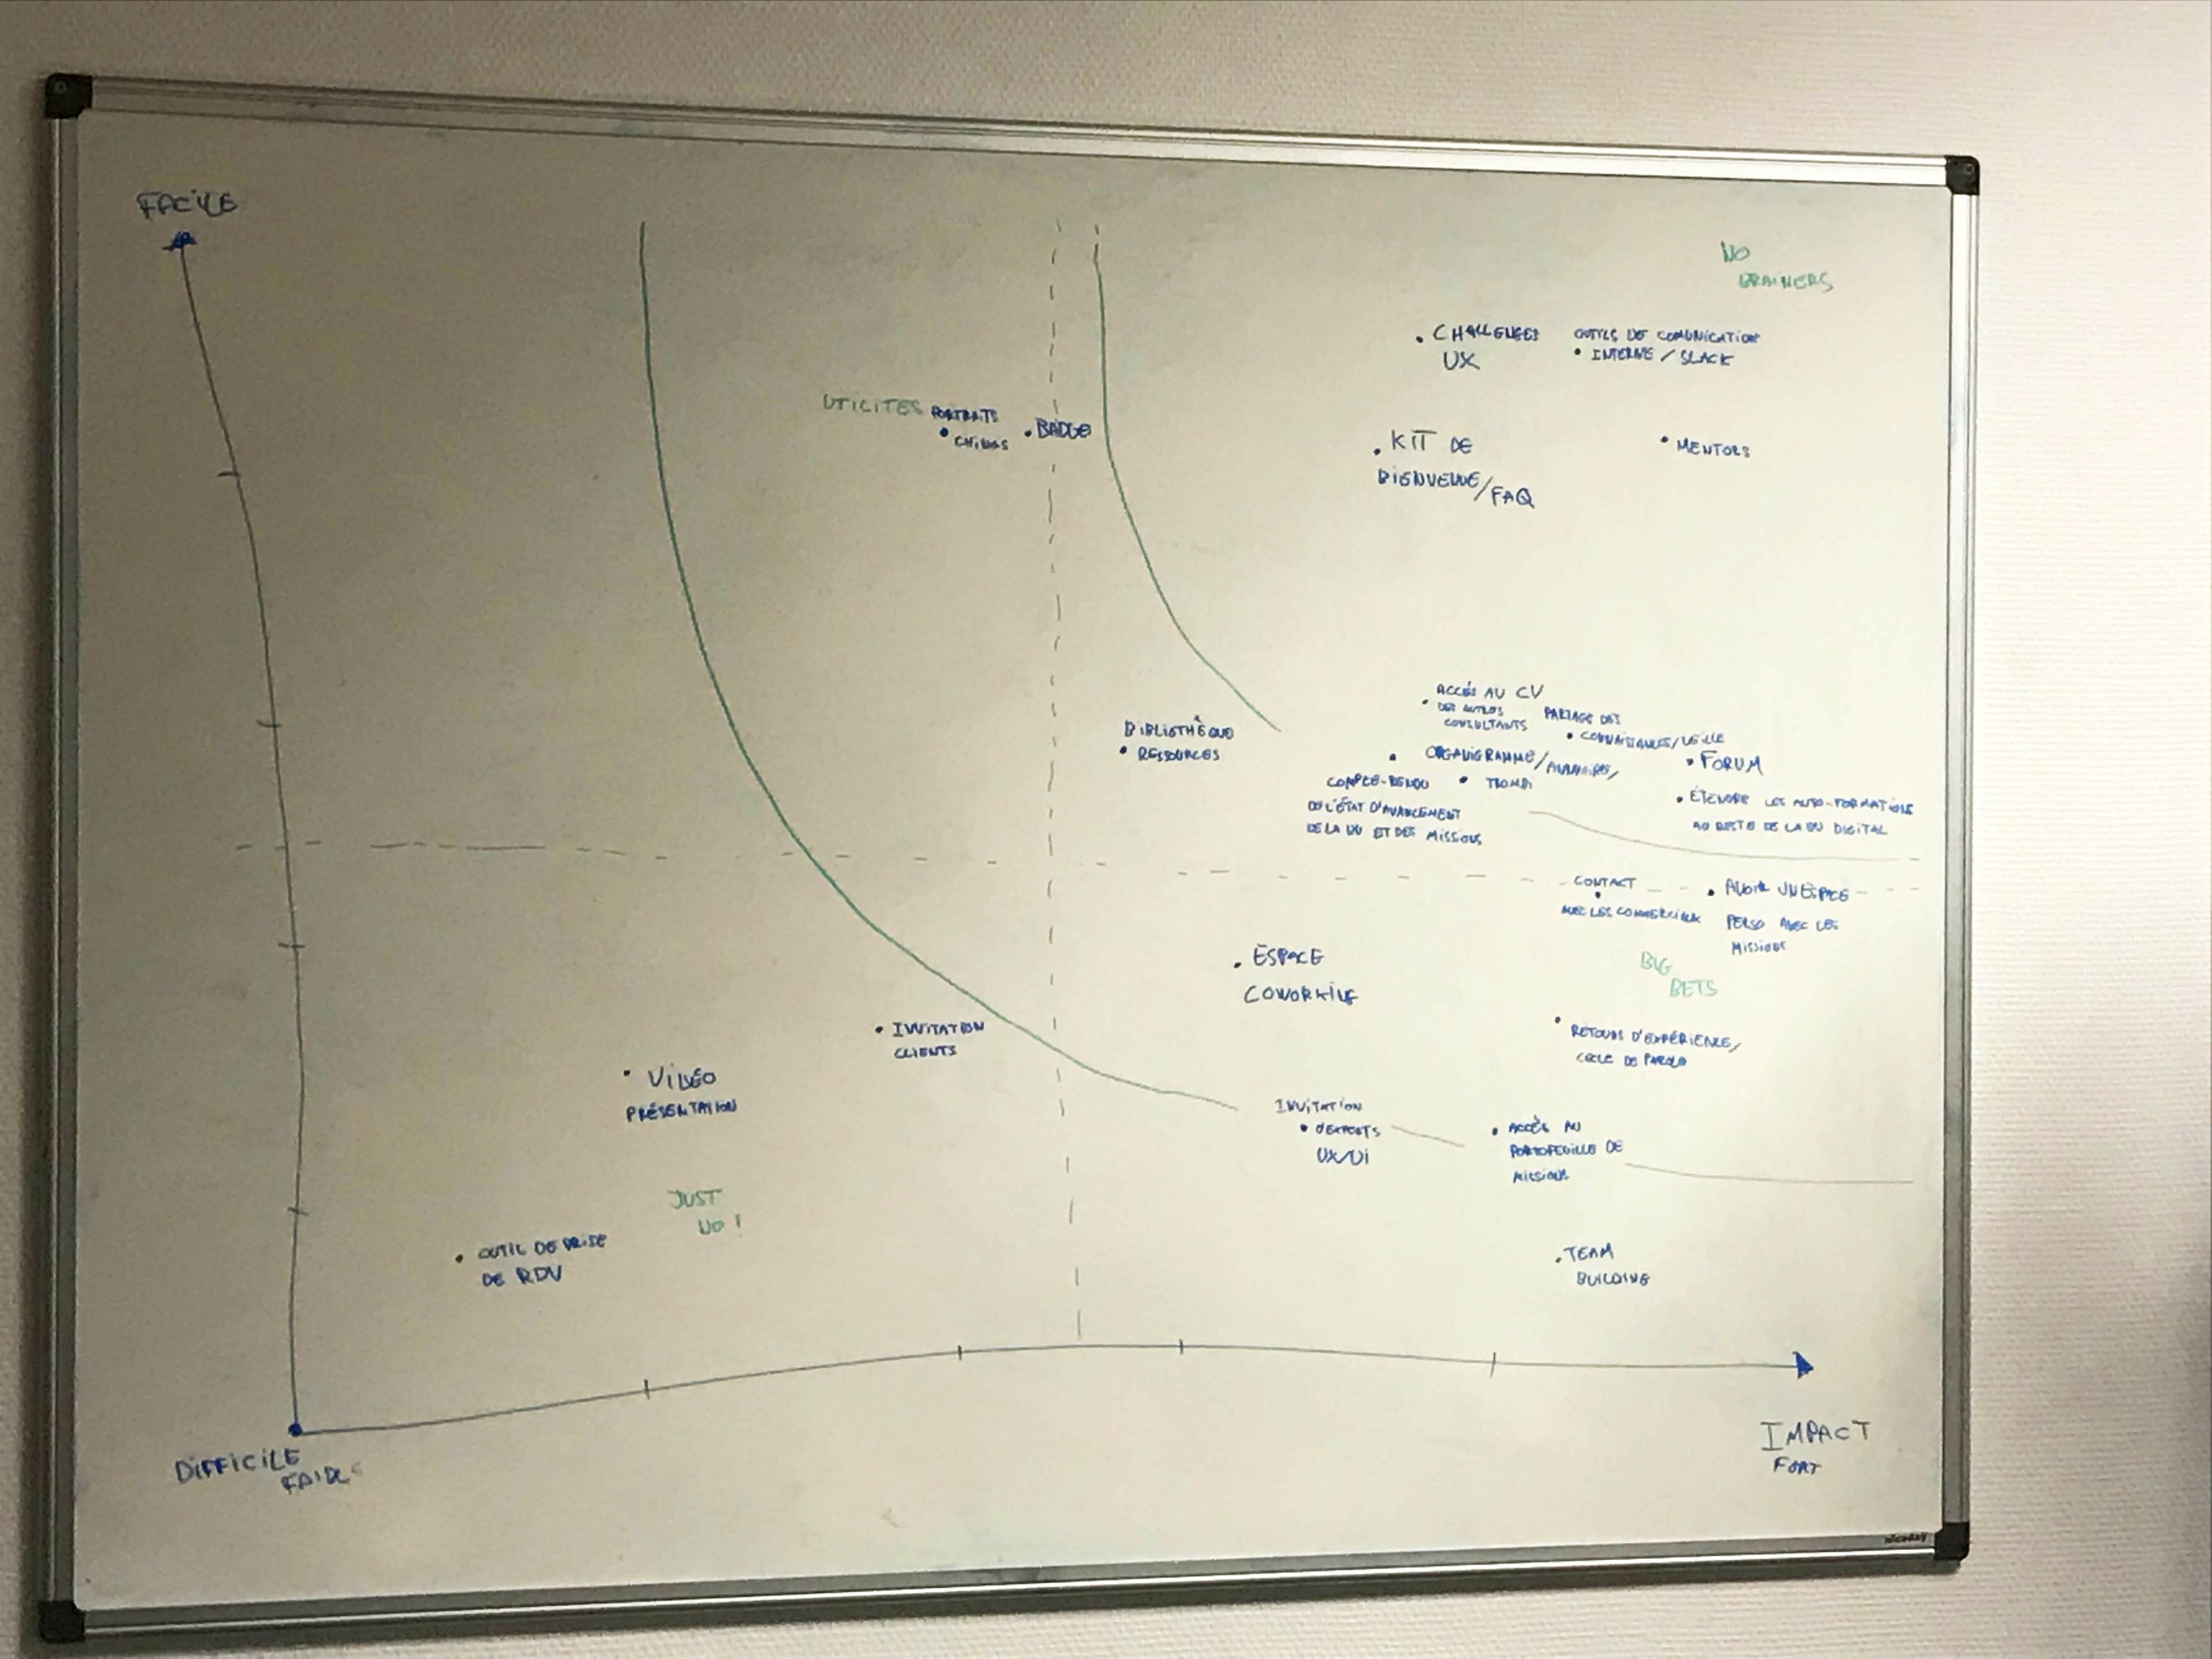 FACILE
NO
BRAINERS
CHALLENGES
UX
OUTILS DE COMUNICATION
INTERNE / SLACK
UTILITES
PORTRAITS
CHINOIS
BADGE
KIT DE
BIENVENUE/FAQ
MENTORS
ACCÈS AU CV
DES AUTRES
CONSULTANTS
PARTAGE DES
CONNAISSANCES/VEILLE
BIBLIOTHÈQUE
RESSOURCES
ORGANIGRAMME/ANNUAIRE/
TROMBI
FORUM
COMPTE-RENDU
DE L'ÉTAT D'AVANCEMENT
DE LA BU ET DES MISSIONS
ÉTENDRE LES AUTO-FORMATIONS
AU RESTE DE LA BU DIGITAL
CONTACT
AVEC LES COMMERCIAUX
AVOIR UN ESPACE
PERSO AVEC LES
MISSIONS
ESPACE
COWORKING
BIG
BETS
INVITATION
CLIENTS
RETOURS D'EXPÉRIENCE/
CERCLE DE PAROLE
VIDÉO
PRÉSENTATION
INVITATION
D'EXPERTS
UX/UI
ACCÈS AU
PORTOFEUILLE DE
MISSIONS
JUST
NO !
OUTIL DE PRISE
DE RDV
TEAM
BUILDING
DIFFICILE
FAIBLE
IMPACT
FORT
niceday